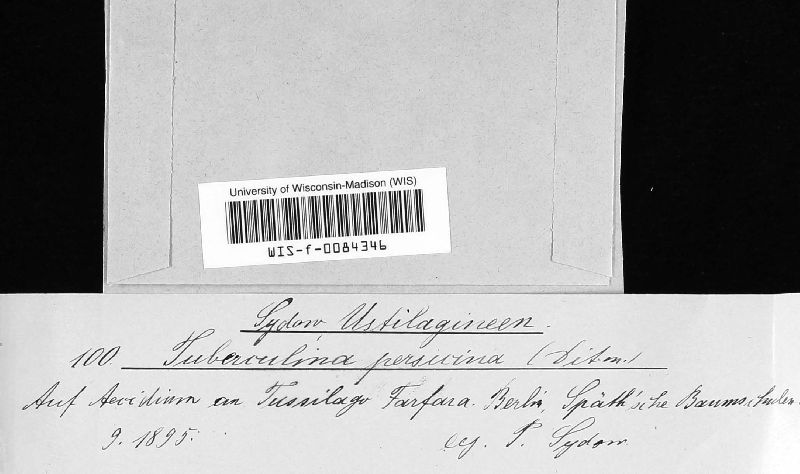 University of Wisconsin-Madison (WIS)
WIS-f-0084346
Sydow Ustilagineen.
100. Tuberculina persicina (Ditm.)
Auf Aecidium an Tussilago Farfara. Berlin, Späth'sche Baumschulen.
9. 1895. leg. P. Sydow